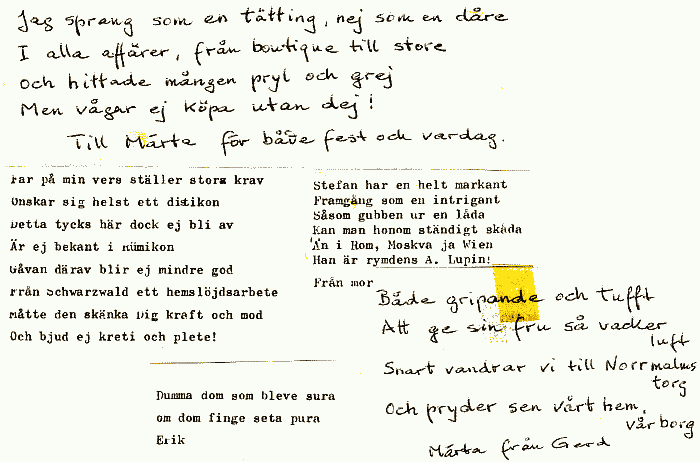 Jag sprang som en tätting, nej som en dåre
I alla affärer, från boutique till store
Och hittade mången pryl och grej
Men vågar ej köpa utan dej!
Till Märta för både fest och vardag.
Far på min vers ställer stora krav
Önskar sig helst ett distikon
Detta tycks här dock ej bli av
Är ej bekant i Rümikon
Gåvan därav blir ej mindre god
Från Schwarzwald ett hemslöjdsarbete
Måtte den skänka Dig kraft och mod
Och bjud ej kreti och plete!
Stefan har en helt markant
Framgång som en intrigant
Såsom gubben ur en låda
Kan man honom ständigt skåda
Än i Rom, Moskva ja Wien
Han är rymdens A. Lupin!
Från mor
Både gripande och tufft
Att ge sin fru så vacker
luft
Snart vandrar vi till Norrmalms
torg
Och pryder sen vårt hem,
vår borg
Märta från Gerd
Dumma dom som bleve sura
om dom finge seta pura
Erik